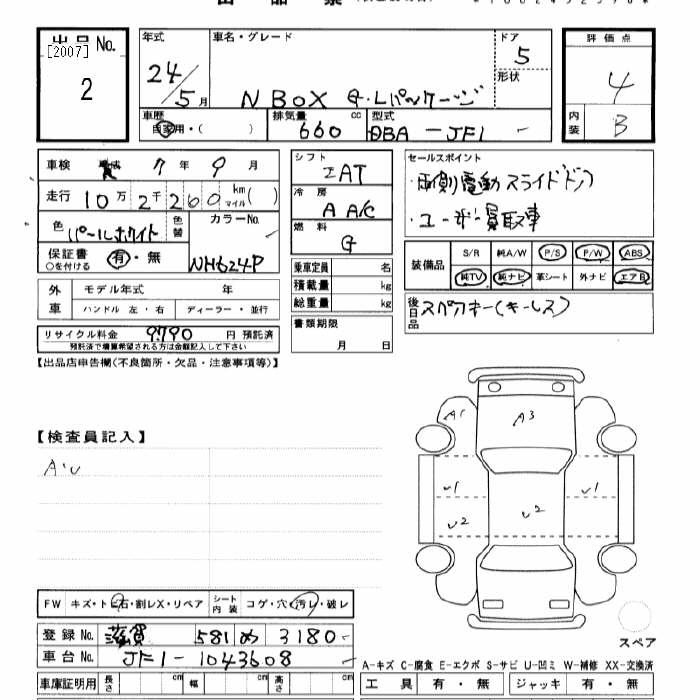 出品No.
[2007]
2
年式
24/5月
車名・グレード
N BOX G・Lパッケージ
ドア
5
形状
評価点
4
内装
B
車歴
自家用・( )
排気量
660 cc
型式
DBA-JF1
車検 7年 9月
走行 10万2千260 km マイル( )
色 パールホワイト 色替
カラーNo.
NH624P
保証書 有・無
○を付ける
外車 モデル年式 年
ハンドル 左・右 ディーラー・並行
リサイクル料金 9790 円 預託済
預託済で増算希望される方は金額記入して下さい
シフト
IAT
冷房
A A/C
燃料
G
乗車定員 名
積載量 kg
総重量 kg
書類期限
月 日
セールスポイント
・両側電動スライドドア
・ユーザー買取車
装備品
S/R 純A/W P/S P/W ABS
純TV 純ナビ 革シート 外ナビ エアB
後日品
スペアキー(キーレス)
【出品店申告欄(不良箇所・欠品・注意事項等)】
【検査員記入】
A・U
A1
A3
U1
U1
U2
U2
スペア
FW キズ・トビ石・割レX・リペア シート内装 コゲ・穴・汚レ・破レ
登録No. 滋賀 581 め 3180
車台No. JF1-1043608
A-キズ C-腐食 E-エクボ S-サビ U-凹ミ W-補修 XX-交換済
車庫証明用 長さ cm 幅 cm 高さ cm
工具 有・無 ジャッキ 有・無